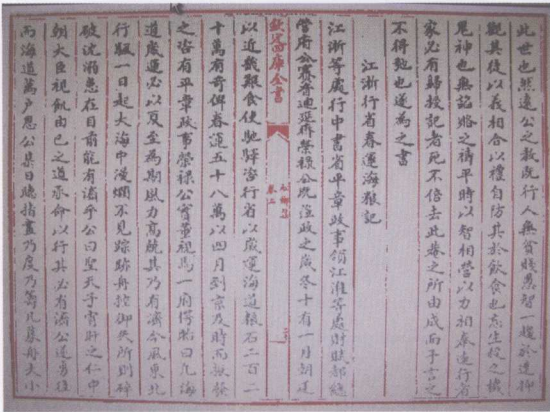 此世也然遠公之教既行人無貧賤愚智一趨於道抑
觀其徒以義相合以禮自防其於飲食也忘生殺之機
鬼神也無諂賂之禱平時以智相營以力相奉遠行省
家必有歸投記者死不倍去此菴之所由成而予言之
不得免也遂為之書
江浙行省春運海糧記
江浙等處行中書省平章政事領江淮等處財賦都總
管府公寶迪延濟榮祿公既涖政之歲冬十有一月朝廷
欽定四庫全書
卷三
以近畿艱食使馳驛咨行省以歲運海道糧石二百二
十萬有奇俾春運五十八萬以四月到京及時而無
之咨有平章政事榮祿公實董視焉一府愕眙曰凡海
道歲運必以夏至為期風力高競其乃有濟今風東北
行驅一日起大海中漫爛不見踪跡舟御失所則碎
破沈溺患在目前能有濟乎公曰聖天子宵旰之仁中
朝大臣視飢由己之道承命以行其必有濟公遂勇往
而海道萬戶恩公集日聽指畫乃度乃籌凡募舟大小